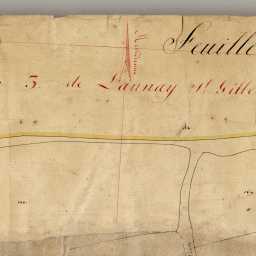 Feuille
3. de Launay St Gille
de